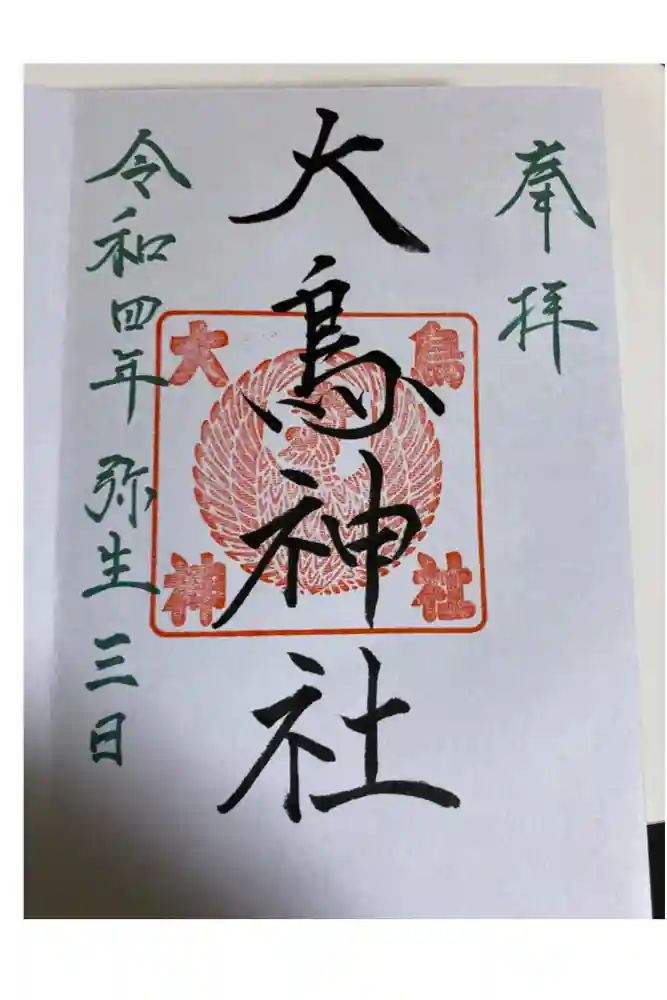 奉拝
大鳥神社
大鳥
神社
令和四年 弥生 三日